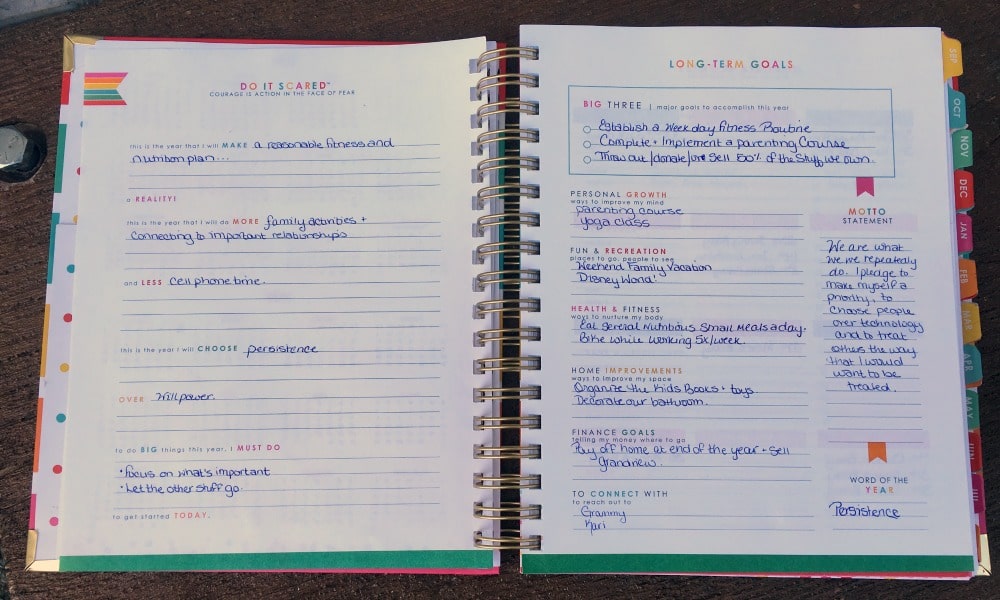 DO IT SCARED™
COURAGE IS ACTION IN THE FACE OF FEAR
this is the year that I will MAKE a reasonable fitness and
nutrition plan...
a REALITY!
this is the year that I will do MORE family activities +
Connecting to important relationships
and LESS Cell phone time.
this is the year I will CHOOSE persistence
OVER Willpower.
to do BIG things this year, I MUST DO
• Focus on what's important
• Let the other stuff go.
to get started TODAY.
LONG-TERM GOALS
BIG THREE | major goals to accomplish this year
Establish a Weekday fitness Routine
Complete + Implement a parenting Course
Throw out/donate/ Sell 50% of the Stuff we own.
PERSONAL GROWTH
ways to improve my mind
parenting course
yoga class
FUN & RECREATION
places to go, people to see
Weekend Family Vacation
Disney World!
HEALTH & FITNESS
ways to nurture my body
Eat several Nutritious Small Meals a day.
Bike while working 5x/week.
HOME IMPROVEMENTS
ways to improve my space
Organize the Kids Books + toys
Decorate our bathroom.
FINANCE GOALS
telling my money where to go
Pay off home at end of the year + Sell
Grandview.
TO CONNECT WITH
to reach out to
Grammy
Kari
MOTTO
STATEMENT
We are what
we we repeatedly
do. I pledge to
make myself a
priority, to
choose people
over technology
and to treat
others the way
that I would
want to be
treated.
WORD OF THE
YEAR
Persistence
SEP
OCT
NOV
DEC
JAN
FEB
MAR
APR
MAY
JUN
JUL